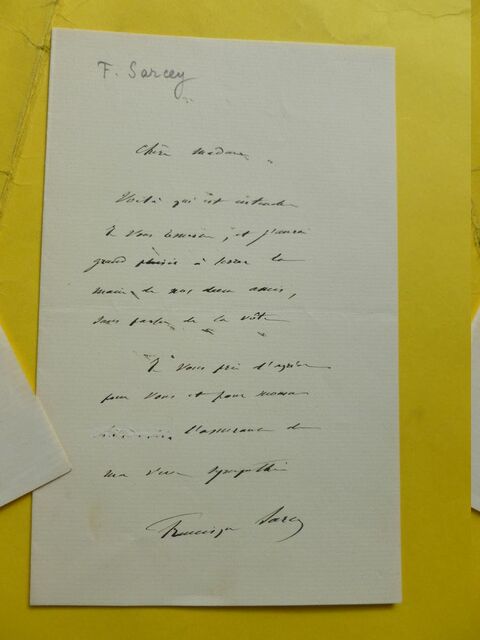 F. Sarcey
Chère Madame
Voilà qui est entendu
Je vous remercie, et j'aurai
grand plaisir à serrer la
main de nos deux amis,
sans parler de la vôtre
Je vous prie d'agréer
pour vous et pour
l'assurance de
ma vive sympathie
Francisque Sarcey